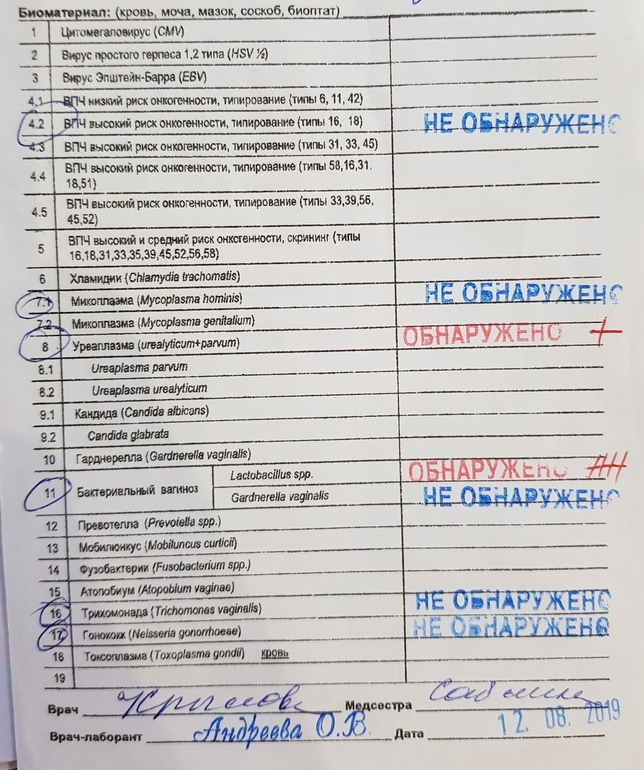 Биоматериал: (кровь, моча, мазок, соскоб, биоптат)
1 Цитомегаловирус (CMV)
2 Вирус простого герпеса 1,2 типа (HSV ½)
3 Вирус Эпштейн-Барра (EBV)
4.1 ВПЧ низкий риск онкогенности, типирование (типы 6, 11, 42)
4.2 ВПЧ высокий риск онкогенности, типирование (типы 16, 18) НЕ ОБНАРУЖЕНО
4.3 ВПЧ высокий риск онкогенности, типирование (типы 31, 33, 45)
4.4 ВПЧ высокий риск онкогенности, типирование (типы 58,16,31,
18,51)
4.5 ВПЧ высокий риск онкогенности, типирование (типы 33,39,56,
45,52)
5 ВПЧ высокий и средний риск онкогенности, скрининг (типы
16,18,31,33,35,39,45,52,56,58)
6 Хламидии (Chlamydia trachomatis)
7.1 Микоплазма (Mycoplasma hominis) НЕ ОБНАРУЖЕНО
7.2 Микоплазма (Mycoplasma genitalium)
8 Уреаплазма (urealyticum+parvum) ОБНАРУЖЕНО +
8.1 Ureaplasma parvum
8.2 Ureaplasma urealyticum
9.1 Кандида (Candida albicans)
9.2 Candida glabrata
10 Гарднерелла (Gardnerella vaginalis)
11 Бактериальный вагиноз Lactobacillus spp. ОБНАРУЖЕНО
Gardnerella vaginalis НЕ ОБНАРУЖЕНО
12 Превотелла (Prevotella spp.)
13 Мобилюнкус (Mobiluncus curticii)
14 Фузобактерии (Fusobacterium spp.)
15 Атопобиум (Atopobium vaginae)
16 Трихомонада (Trichomonas vaginalis) НЕ ОБНАРУЖЕНО
17 Гонококк (Neisseria gonorrhoeae) НЕ ОБНАРУЖЕНО
18 Токсоплазма (Toxoplasma gondii) кровь
19
Врач Медсестра
Врач-лаборант Андреева О.В Дата 12. 08. 2019